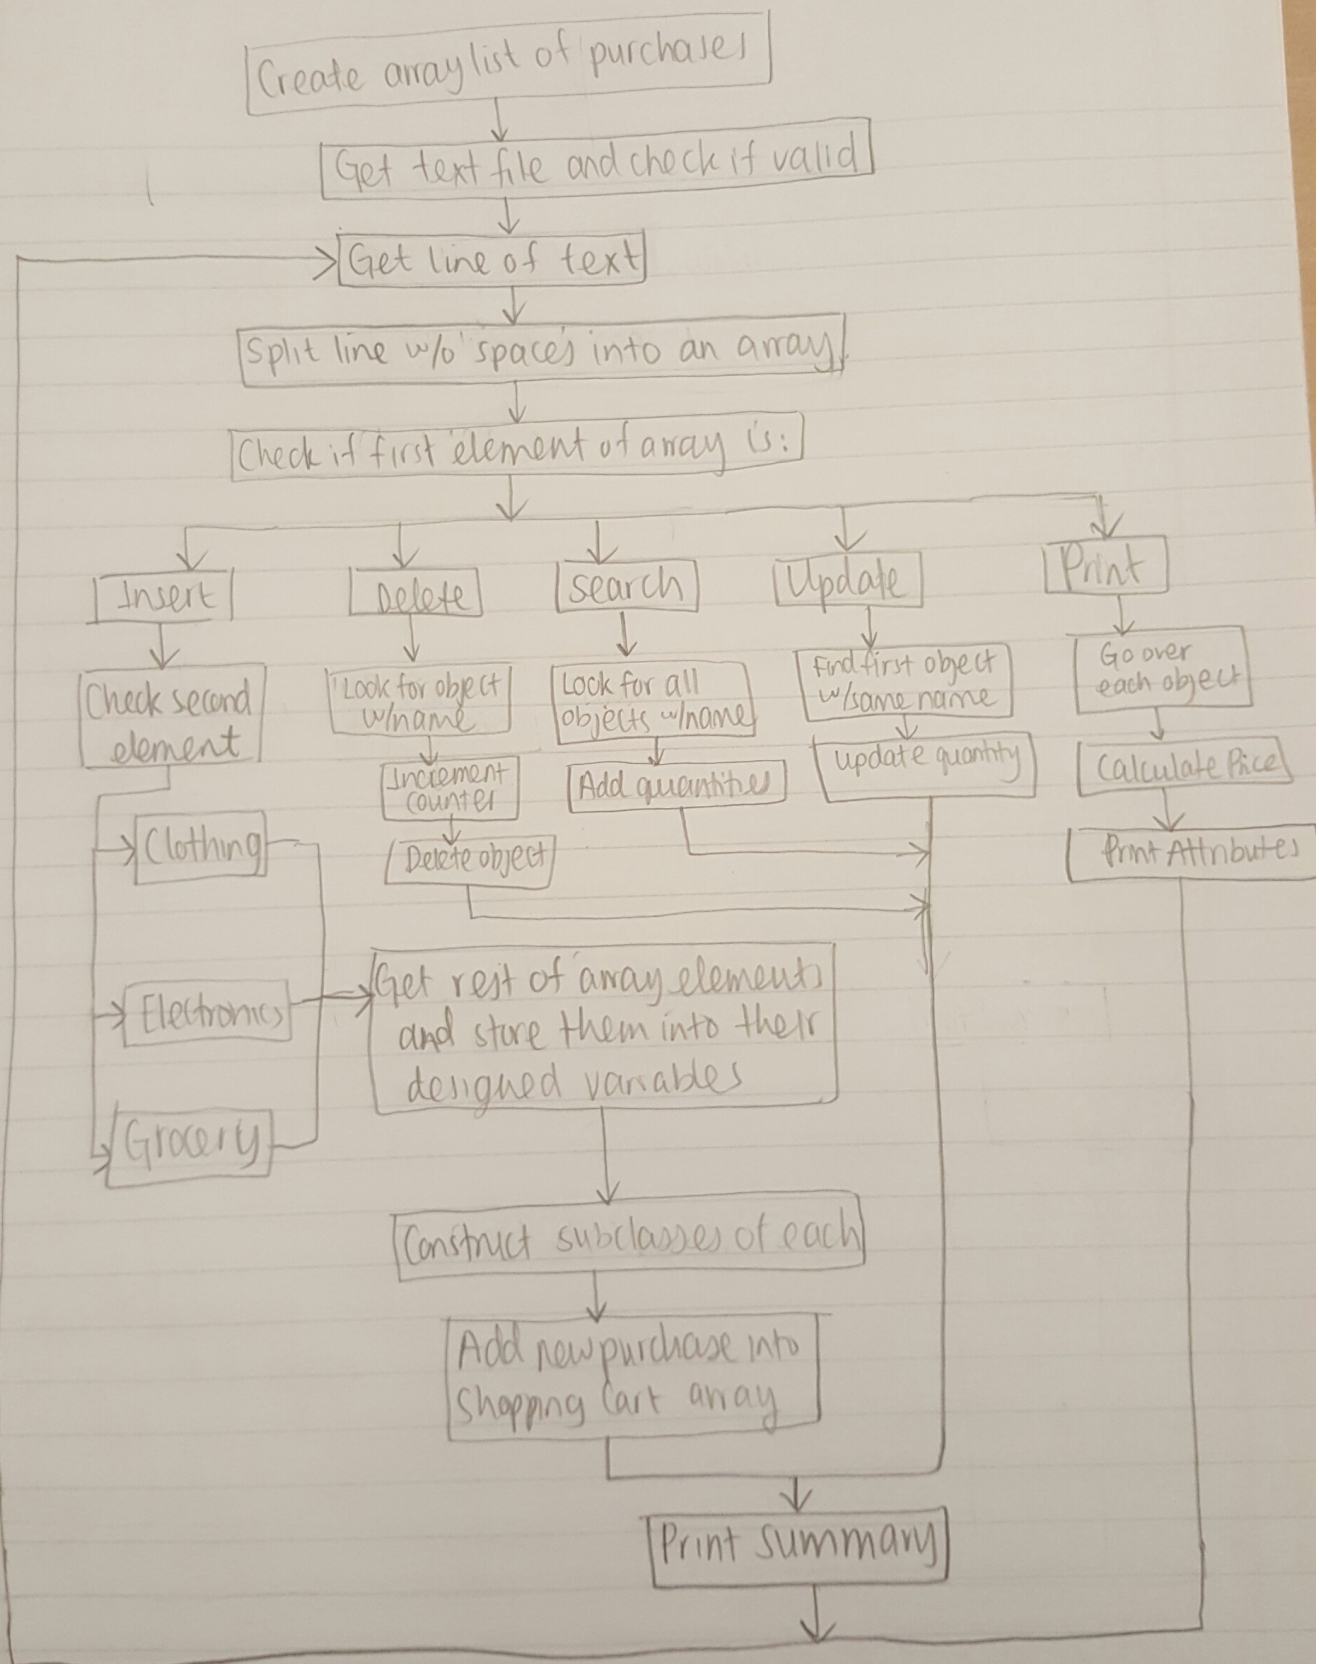 Create arraylist of purchases
Get text file and check if valid
Get line of text
Split line w/o 'spaces' into an array
Check if first element of array is:
Insert
Delete
Search
Update
Print
Check second
element
Look for object
w/name
Increment
counter
Delete object
Look for all
objects w/name
Add quantities
Find first object
w/same name
update quantity
Go over
each object
Calculate Price
Print Attributes
Clothing
Electronics
Grocery
Get rest of array elements
and store them into their
designed variables
Construct subclasses of each
Add new purchase into
Shopping Cart array
Print summary